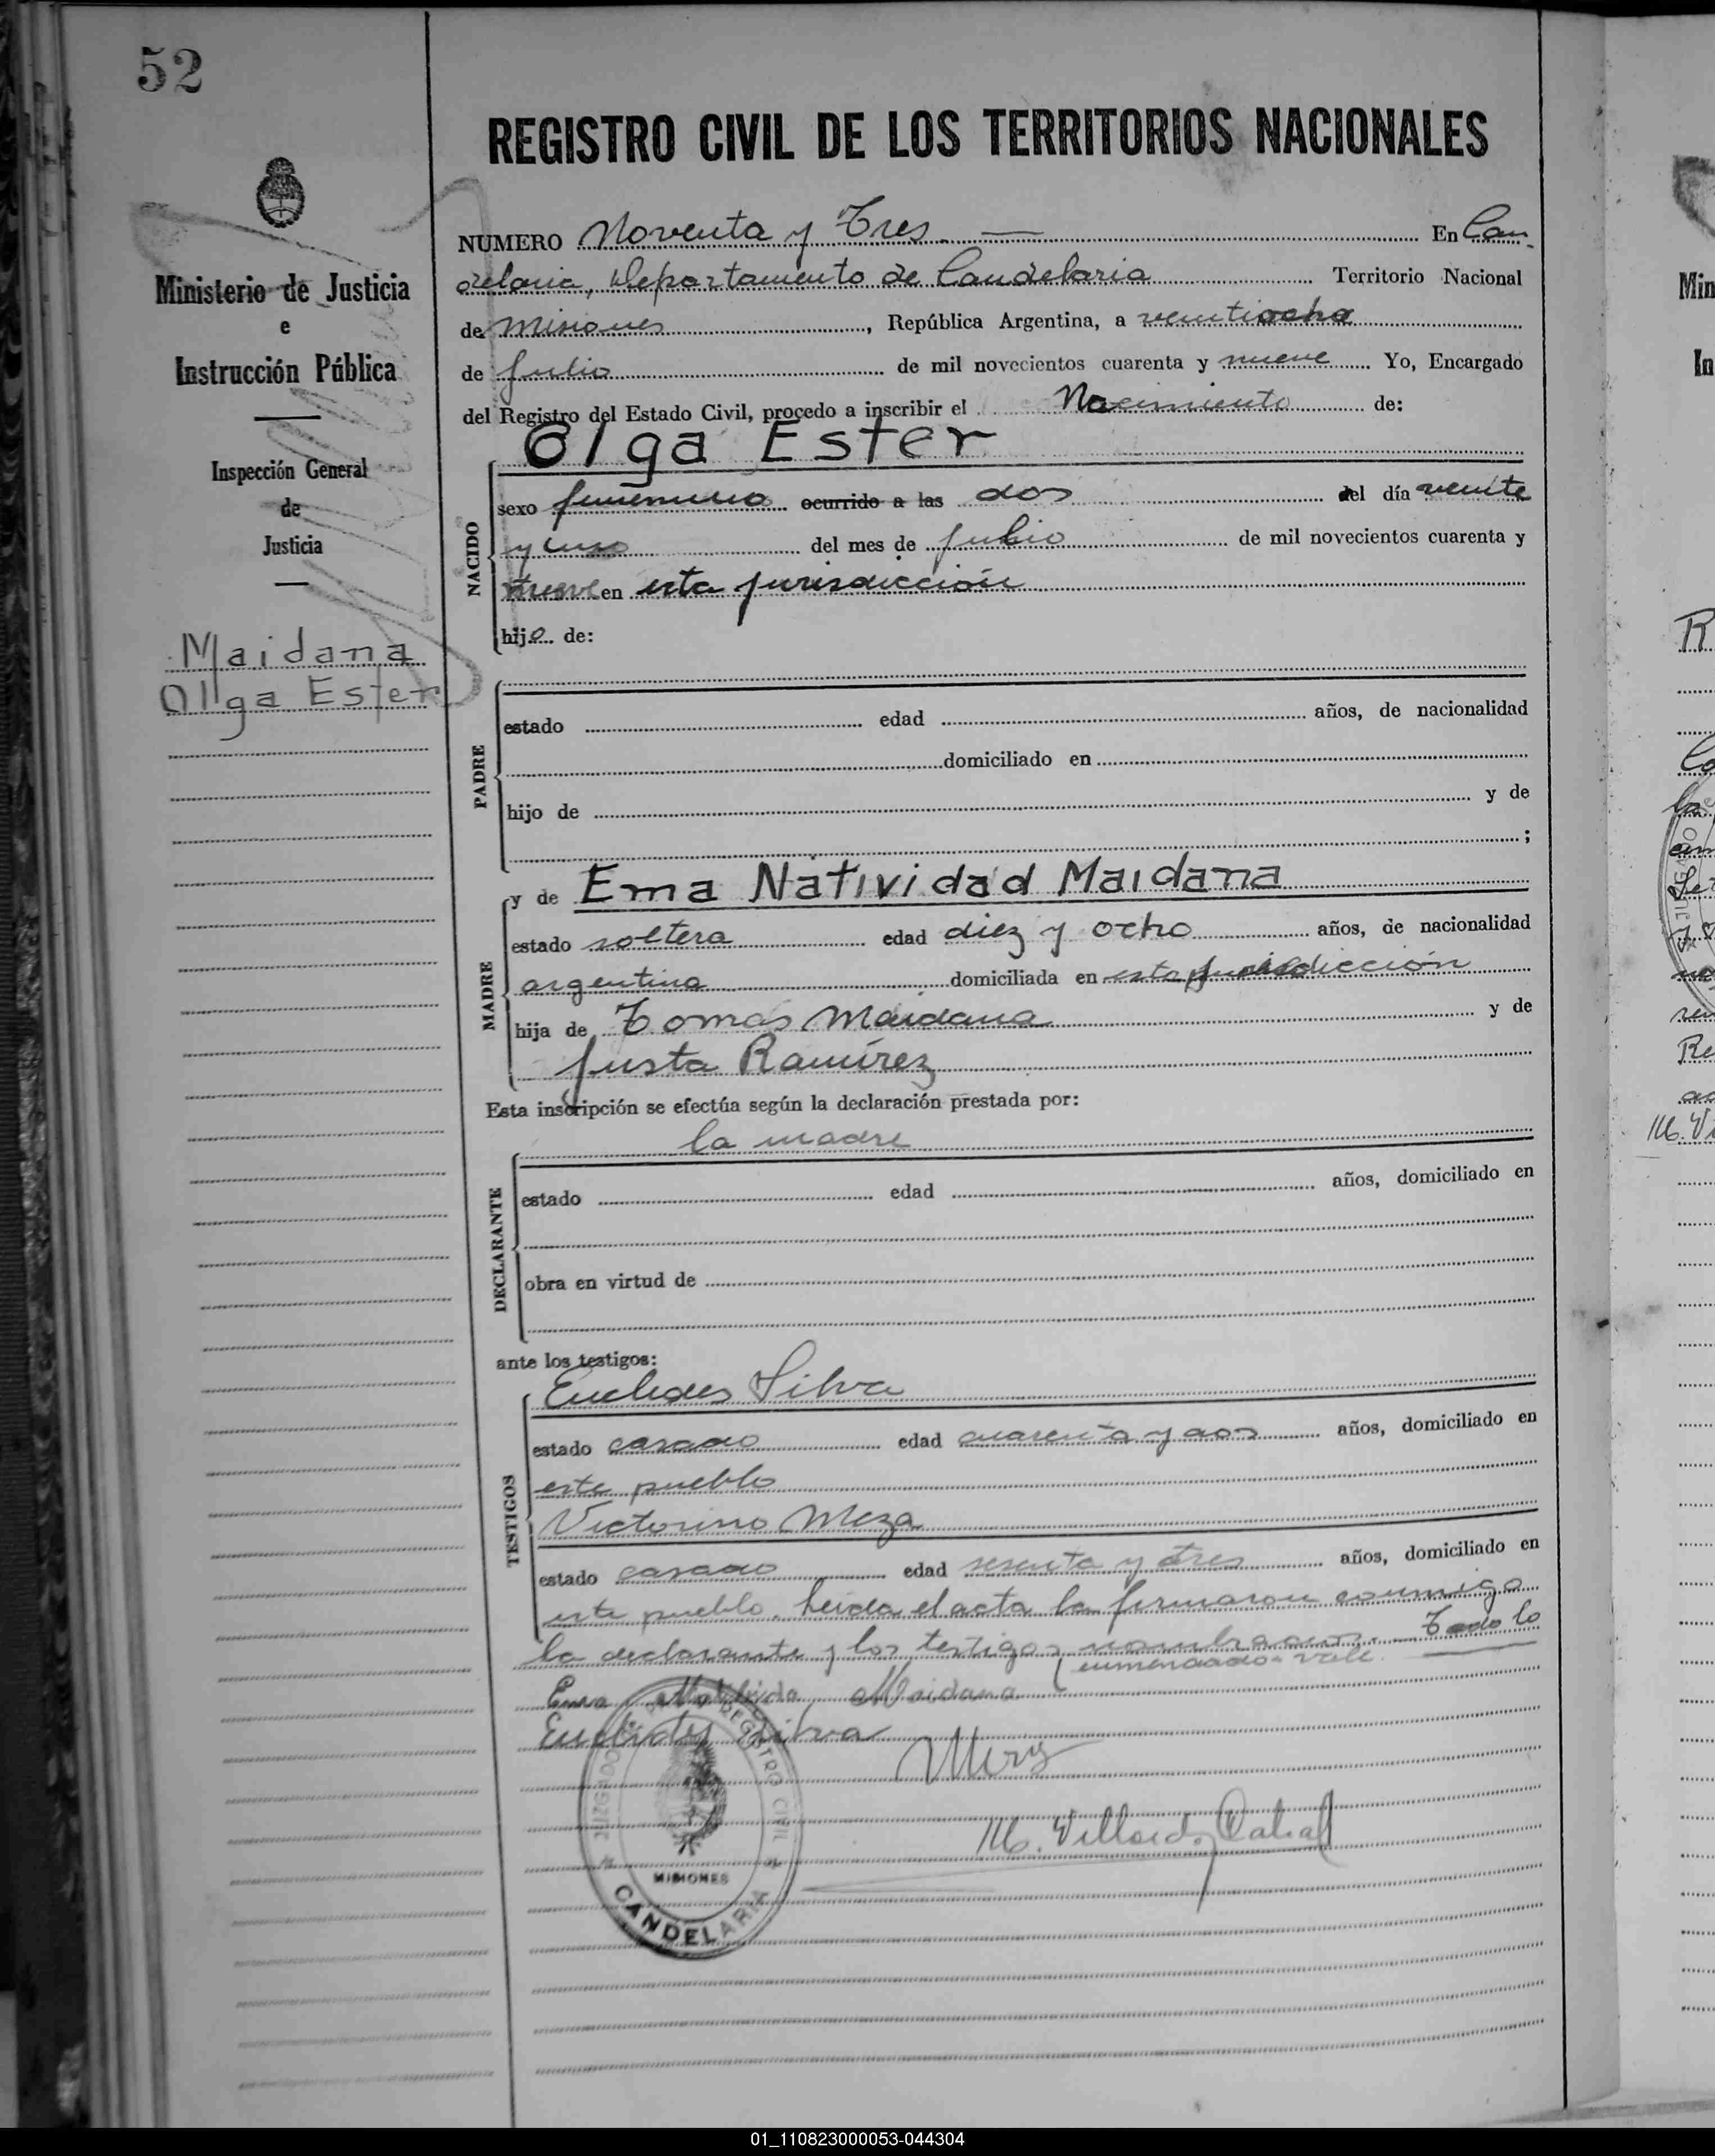 52
REGISTRO CIVIL DE LOS TERRITORIOS NACIONALES
Ministerio de Justicia
e
Instrucción Pública
Inspección General
de
Justicia
Maidana
Olga Ester
NUMERO Noventa y Tres. — En Can-
delaria, Departamento de Candelaria Territorio Nacional
de Misiones, República Argentina, a veintiocho
de Julio de mil novecientos cuarenta y nueve Yo, Encargado
del Registro del Estado Civil, procedo a inscribir el Nacimiento de:
Olga Ester
NACIDO
sexo femenino ocurrido a las dos del día veinte
y uno del mes de Julio de mil novecientos cuarenta y
nueve en esta jurisdicción
hija de:
PADRE
estado edad años, de nacionalidad
domiciliado en
hijo de y de
;
y de Ema Natividad Maidana
MADRE
estado soltera edad diez y ocho años, de nacionalidad
argentina domiciliada en esta jurisdicción
hija de Tomás Maidana y de
Justa Ramírez
Esta inscripción se efectúa según la declaración prestada por:
la madre
DECLARANTE
estado edad años, domiciliado en
obra en virtud de
ante los testigos:
Euclides Silva
TESTIGOS
estado casado edad cuarenta y dos años, domiciliado en
este pueblo
Victorino Meza
estado casado edad sesenta y tres años, domiciliado en
este pueblo. Leída el acta la firmaron conmigo
la declarante y los testigos nombrados. Todo lo
enmendado vale.
Ema Maidana
Euclides Silva
Meza
JUZGADO DE PAZ REGISTRO CIVIL
MISIONES
CANDELARIA
01_110823000053-044304